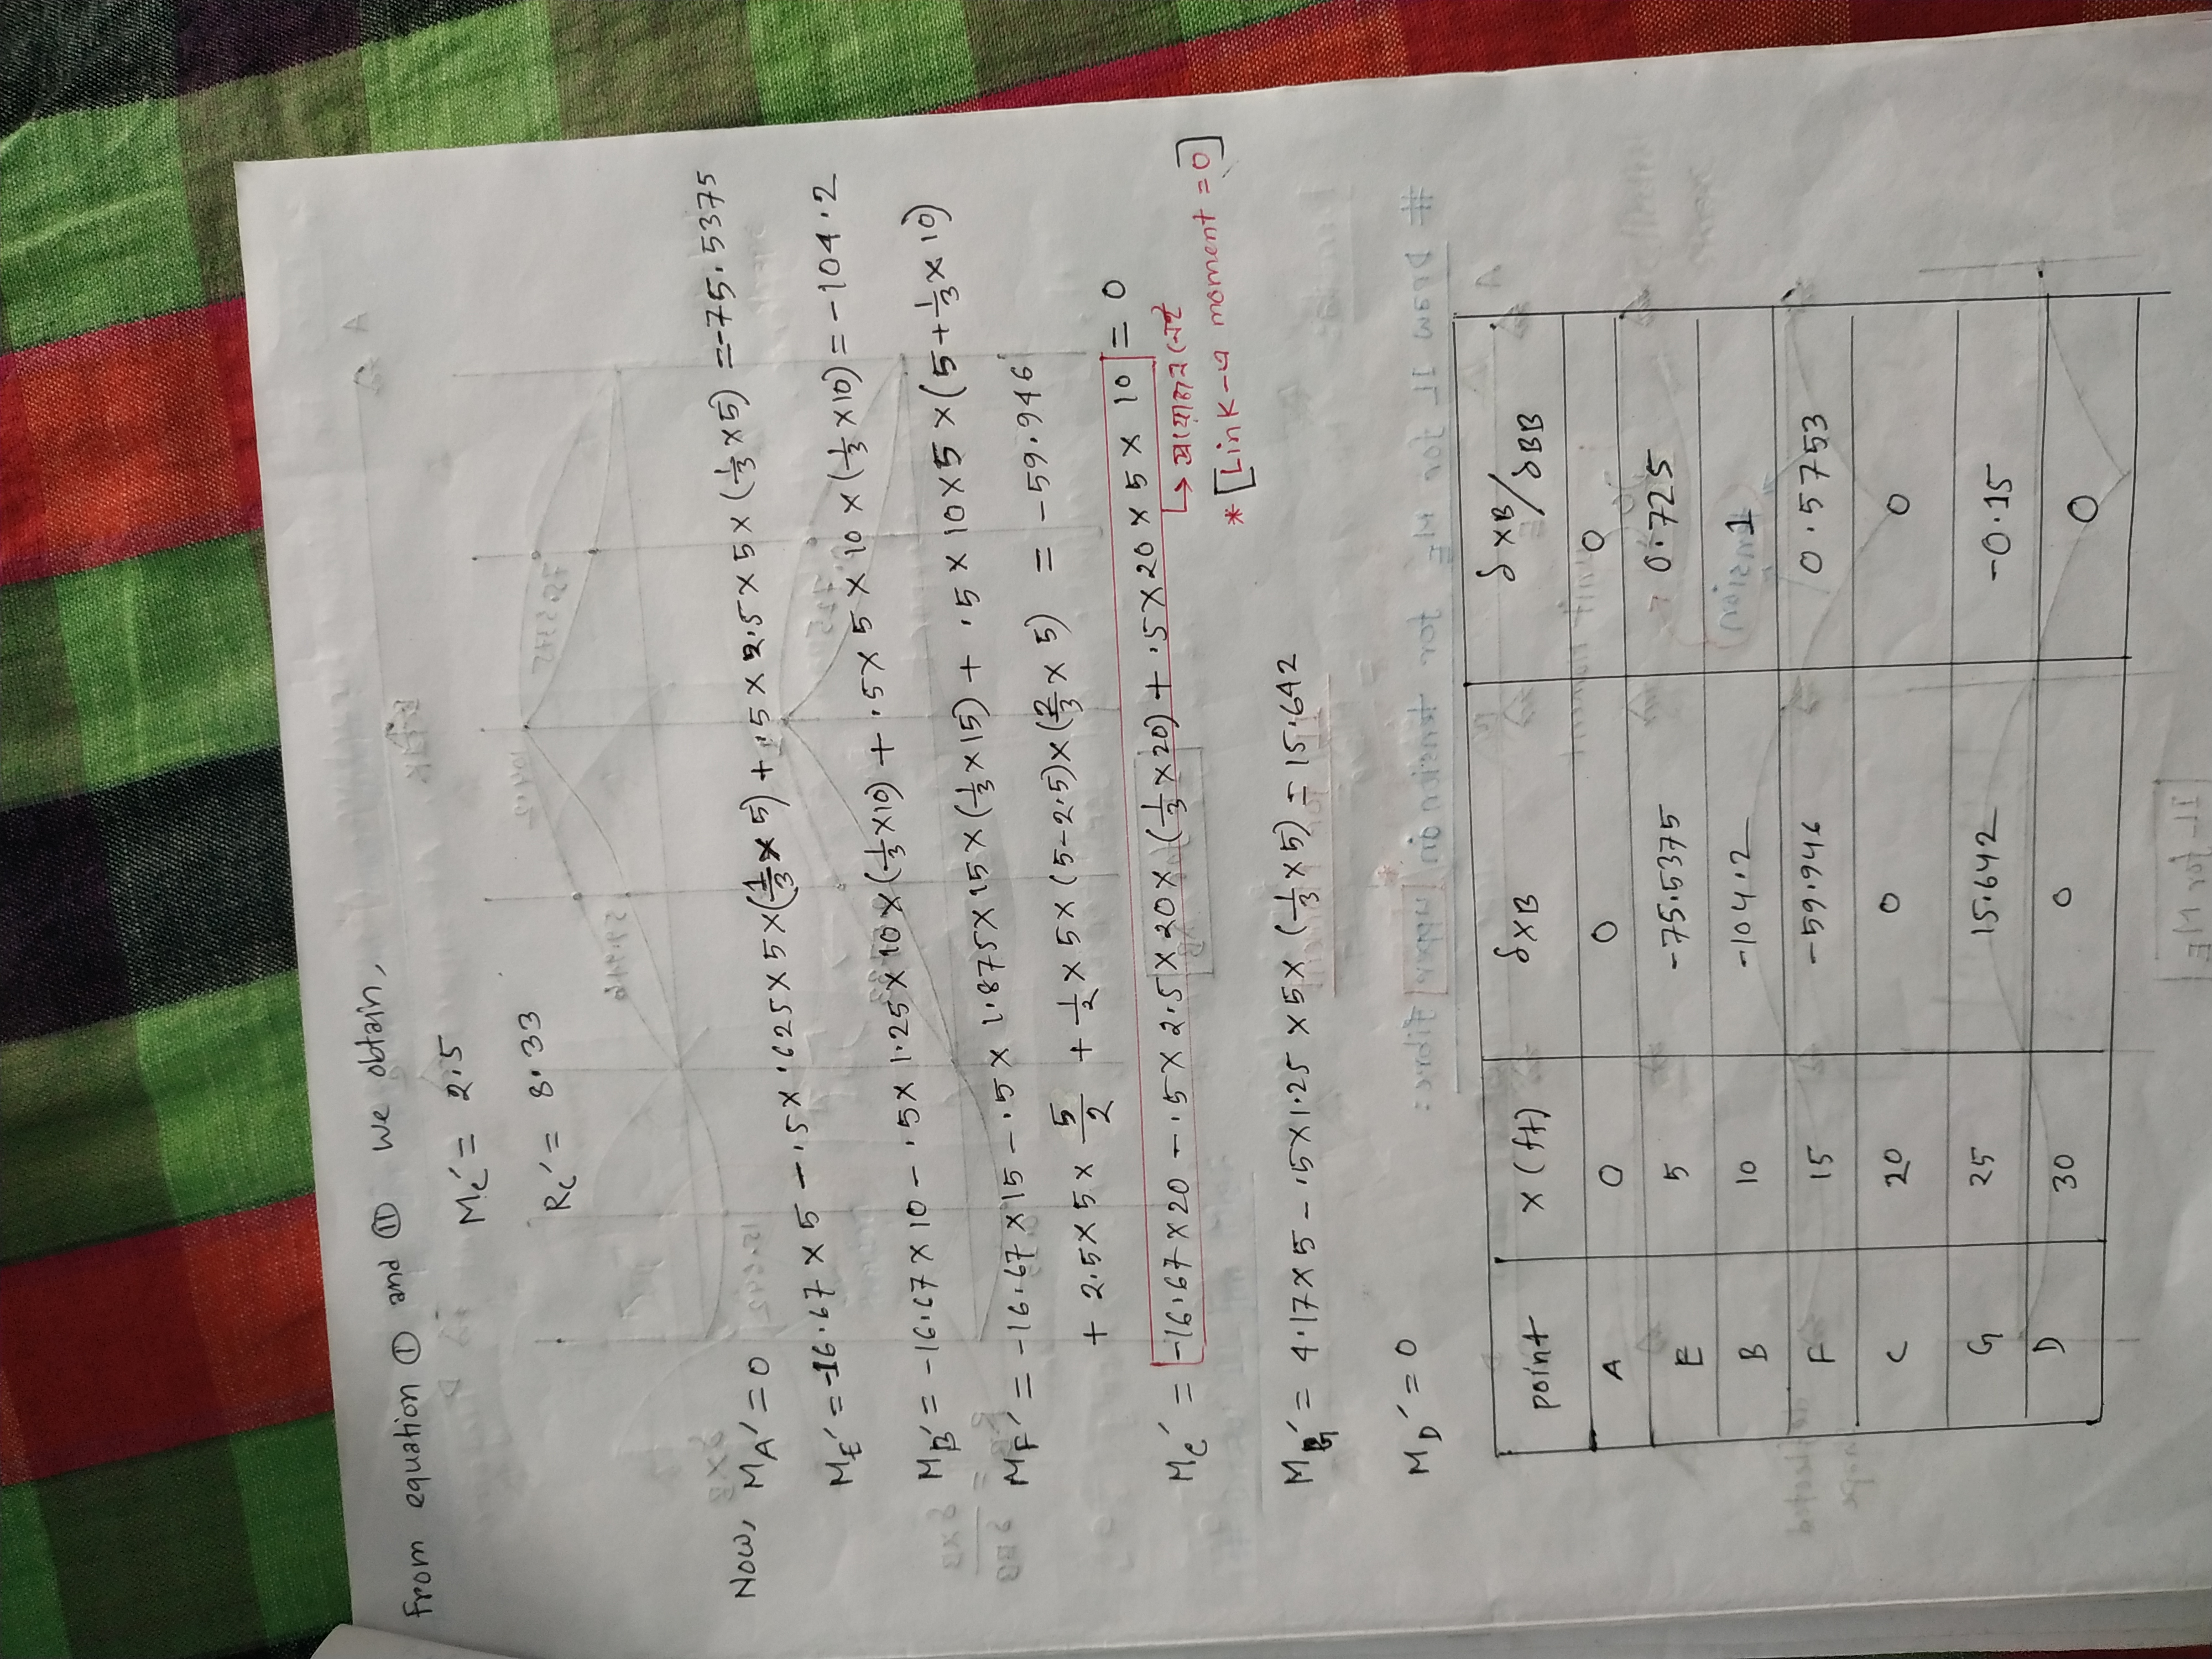 From equation ① and ⑪ we obtain,
Mc′ = 2.5
Rc′ = 8.33
Now, MA′ = 0
ME′ = -16.67 × 5 - .5 × .625 × 5 × (1/3 × 5) + .5 × 2.5 × 5 × (1/3 × 5) = -75.5375
MB′ = -16.67 × 10 - .5 × 1.25 × 10 × (1/3 × 10) + .5 × 5 × 10 × (1/3 × 10) = -104.2
MF′ = -16.67 × 15 - .5 × 1.875 × 15 × (1/3 × 15) + .5 × 10 × 5 × (5 + 1/3 × 10)
+ 2.5 × 5 × 5/2 + 1/2 × 5 × (5 - 2.5) × (2/3 × 5) = -59.946
Mc′ = -16.67 × 20 - .5 × 2.5 × 20 × (1/3 × 20) + .5 × 20 × 5 × 10 = 0
↳ প্রয়োজন নেই
* [Link-এ moment = 0]
MG′ = 4.17 × 5 - .5 × 1.25 × 5 × (1/3 × 5) = 15.642
MD′ = 0
point x (ft) δxB δxB/δBB
A 0 0 0
E 5 -75.5375 0.725
B 10 -104.2 1
F 15 -59.946 0.5753
C 20 0 0
G 25 15.642 -0.15
D 30 0 0